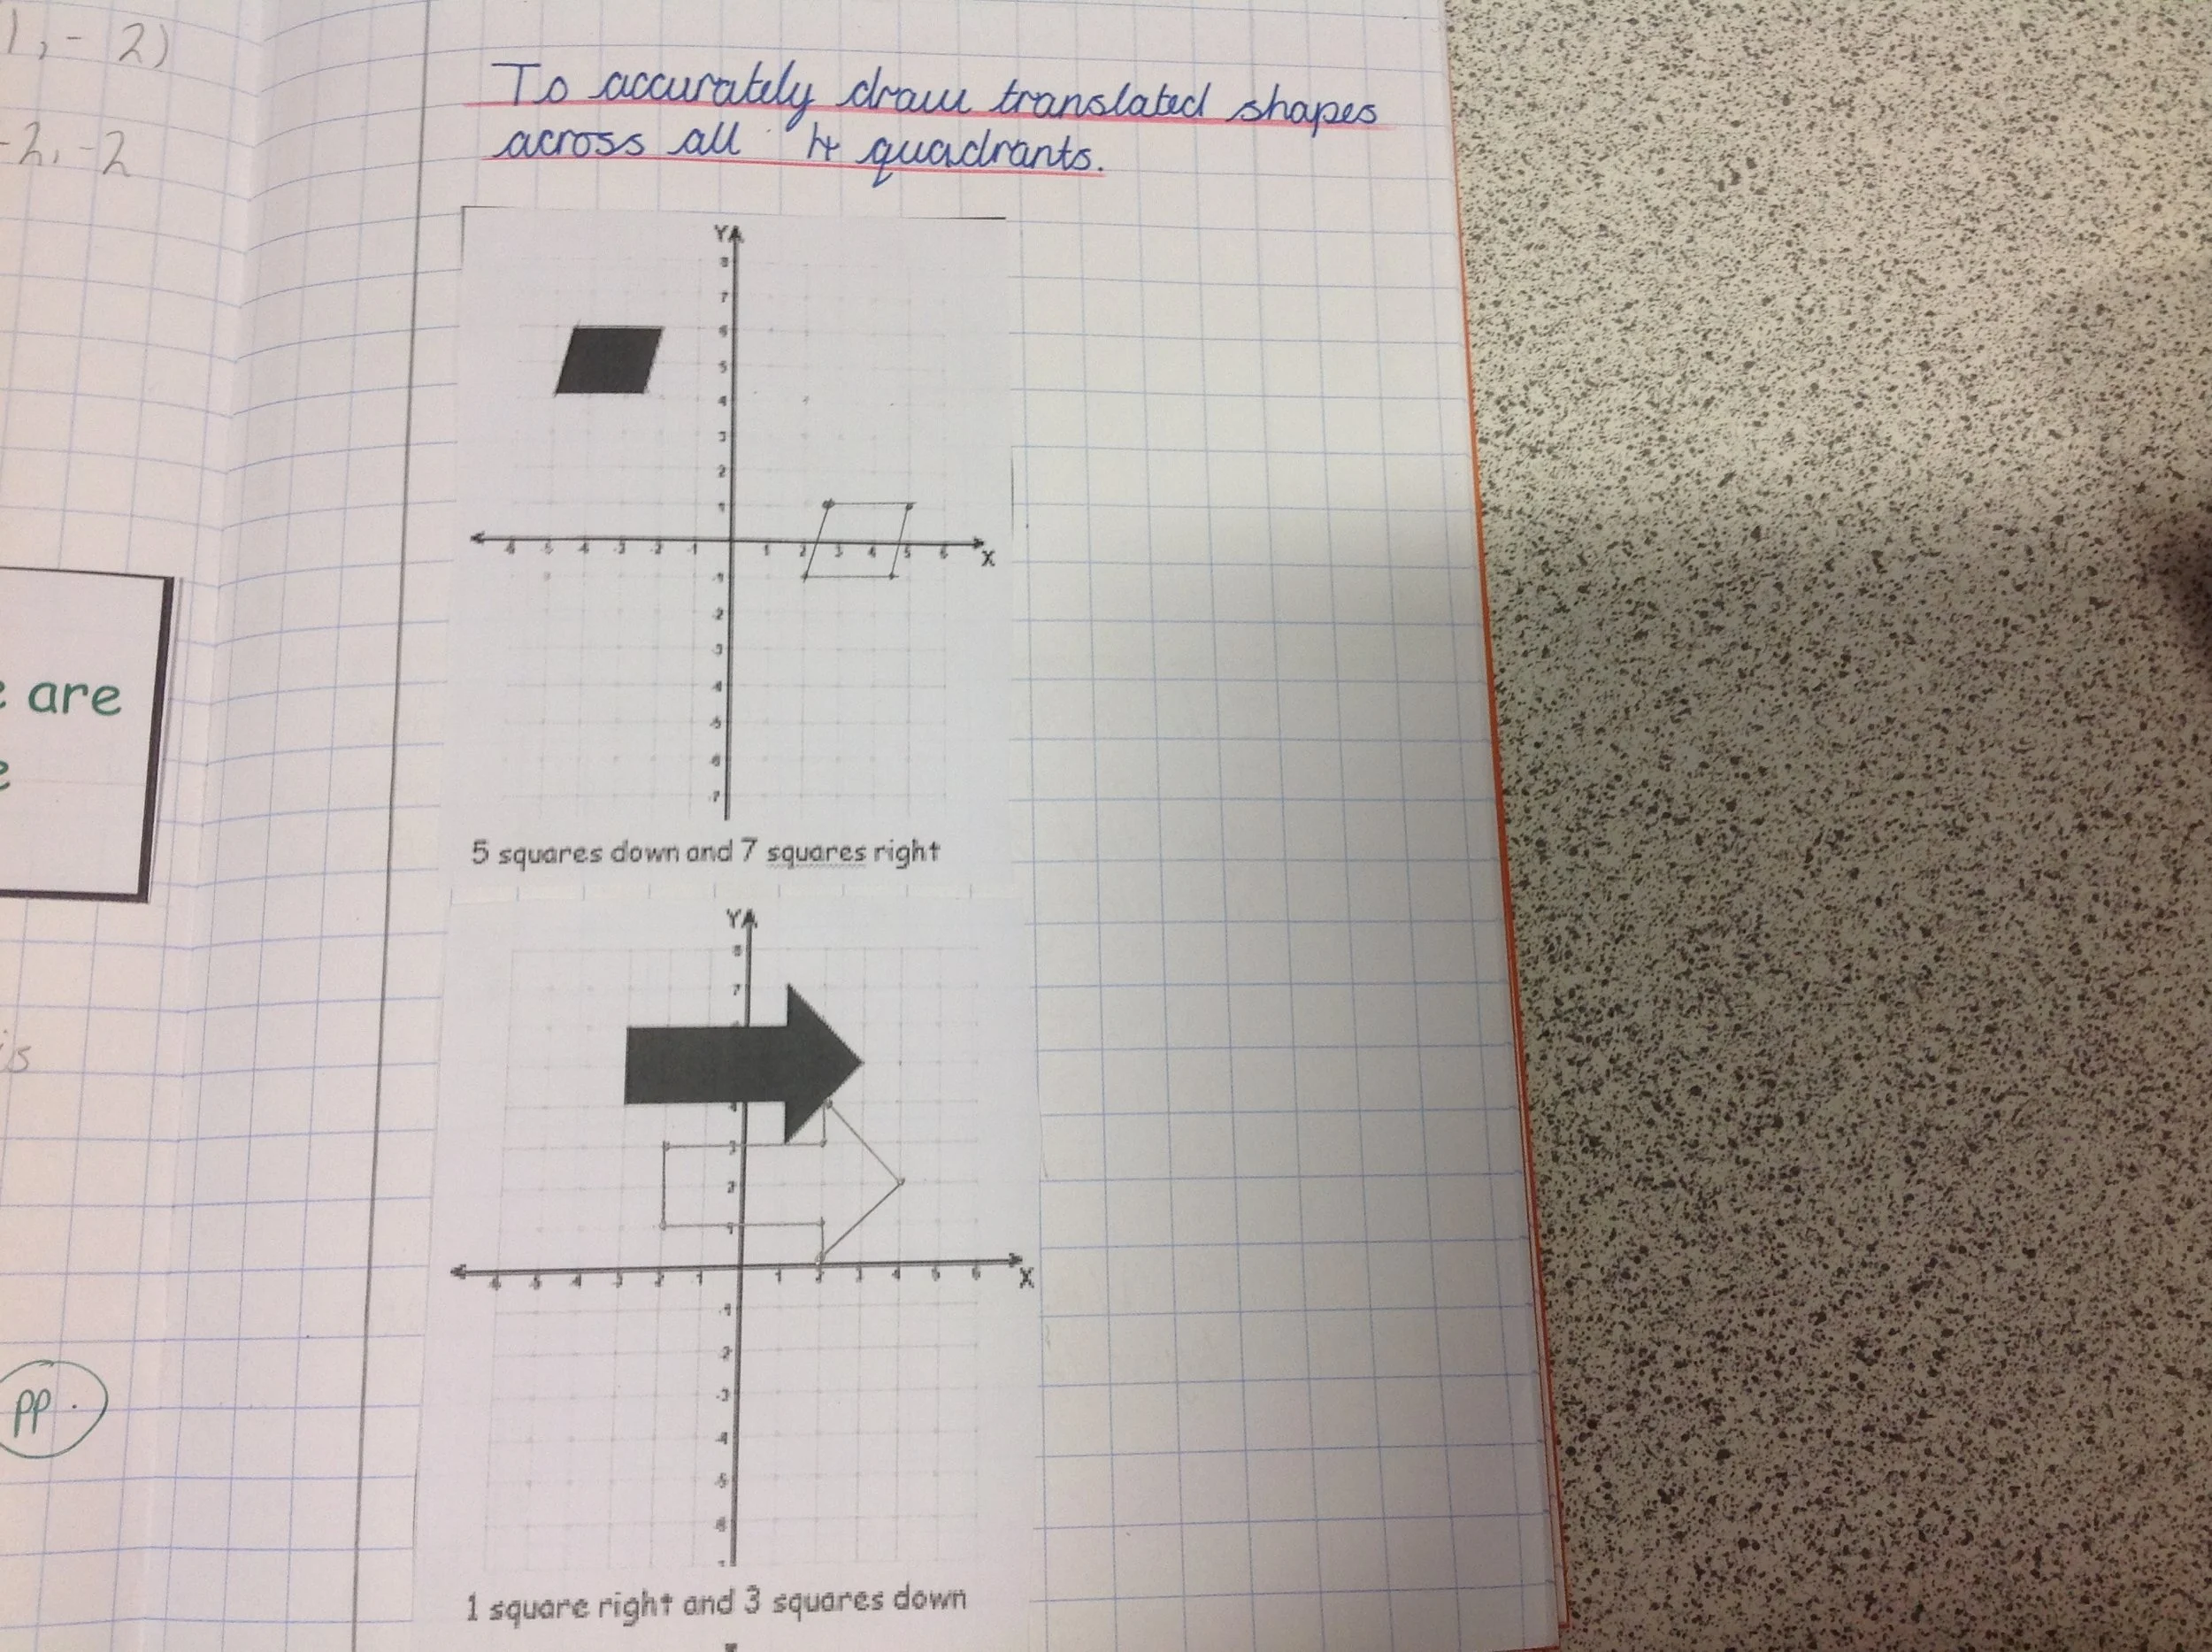 1, - 2)
-2, -2
are
is
pp.
To accurately draw translated shapes
across all 4 quadrants.
Y
8
7
6
5
4
3
2
1
-6 -5 -4 -3 -2 -1 1 2 3 4 5 6
X
-1
-2
-3
-4
-5
-6
-7
5 squares down and 7 squares right
Y
8
7
4
3
2
1
-6 -5 -4 -3 -2 -1 1 2 3 4 5 6
X
-1
-2
-3
-4
-5
-6
1 square right and 3 squares down